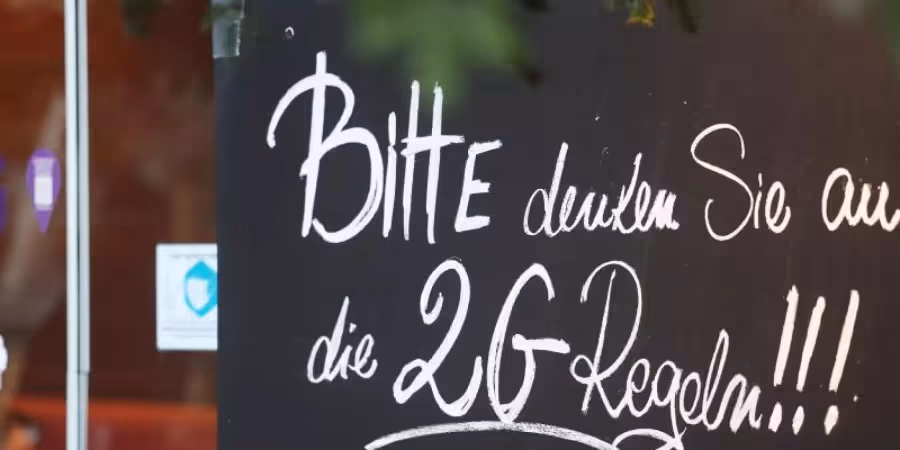 Bitte denken Sie au
die 2G Regeln!!!